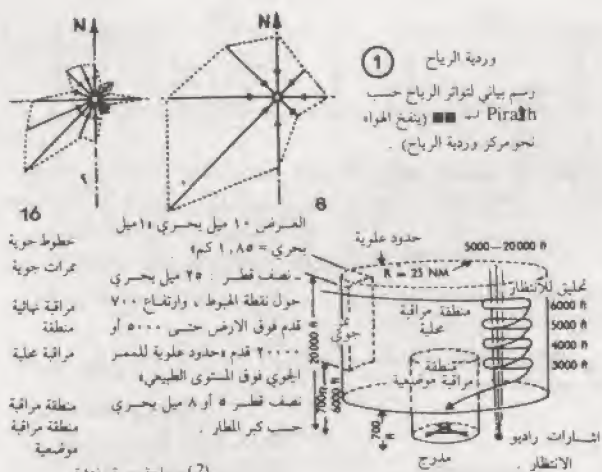 N
N
1
وردية الرياح
رسم بياني لتواتر الرياح حسب
(ينفخ الهواء
نحو مركز وردية الرياح) .
16
8
خطوط جوية
ممرات جوية
مراقبة نهائية
منطقة
مراقبة محلية
منطقة مراقبة
منطقة مراقبة
موضعية
العرض ١٠ ميل بحري (١ ميل
بحري = ١,٨٥ كم)
. نصف قطر : ٢٥ ميل بحري
حول نقطة الهبوط ، وارتفاع ٧٠٠
قدم فوق الارض حتى ٥٠٠٠ أو
٢٠٠٠٠ قدم «حدود علوية للممر
الجوي فوق المستوى الطبيعي»
نصف قطر ٥ أو ٨ ميل بحري
حسب كبر المطار .
حدود علوية
5000—20000 ft
R = 25 NM
تحليق للانتظار
6000 ft
5000 ft
4000 ft
3000 ft
منطقة مراقبة
محلية
منطقة
مراقبة موضعية
20000 ft
700 ft
6000 ft
700 ft
مدرج
اشارات راديو
الانتظار .